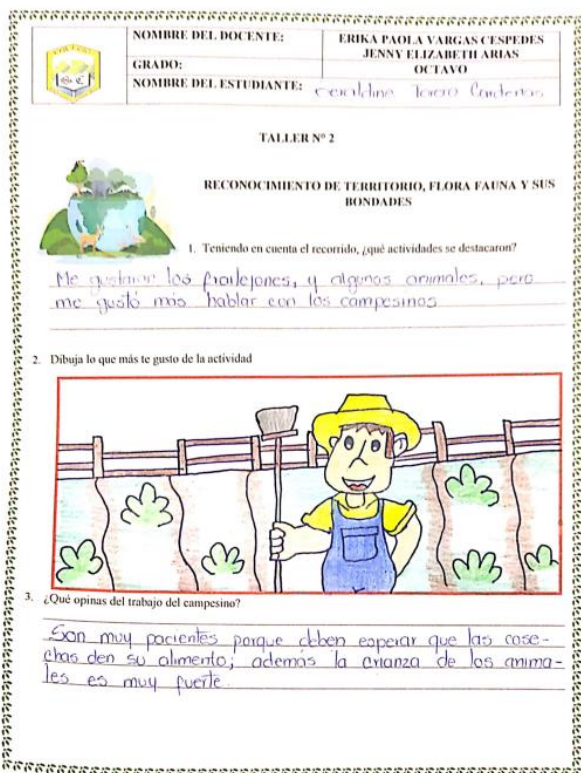 NOMBRE DEL DOCENTE:
ERIKA PAOLA VARGAS CESPEDES
JENNY ELIZABETH ARIAS
GRADO:
OCTAVO
NOMBRE DEL ESTUDIANTE:
Geraldine Cardenas
TALLER Nº 2
RECONOCIMIENTO DE TERRITORIO, FLORA FAUNA Y SUS
BONDADES
1. Teniendo en cuenta el recorrido, ¿qué actividades se destacaron?
Me gustaron los frailejones, y algunos animales, pero
me gustó más hablar con los campesinos
2. Dibuja lo que más te gusto de la actividad
3. ¿Qué opinas del trabajo del campesino?
Son muy pacientes porque deben esperar que las cose-
chas den su alimento; además la crianza de los anima-
les es muy fuerte.